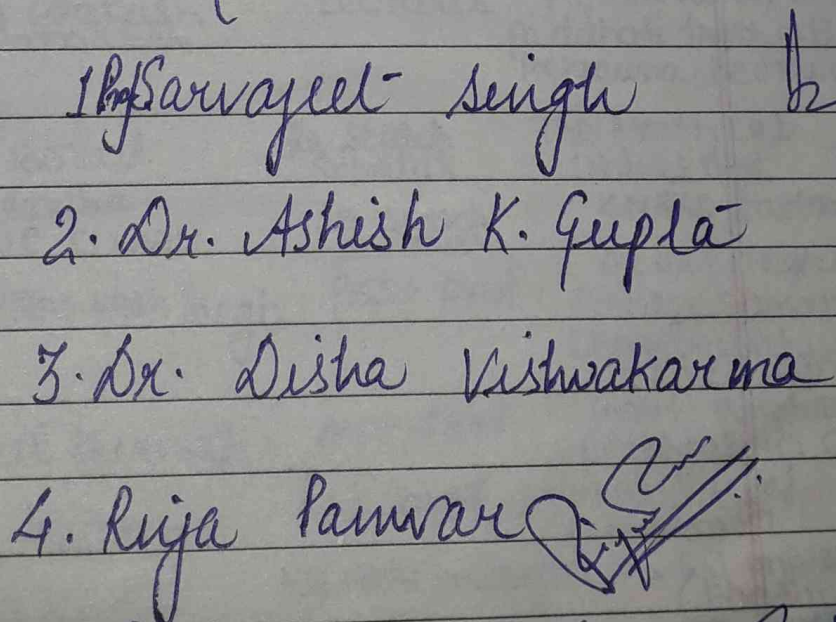 1 Prof Sarvajeet Singh
2. Dr. Ashish K. Gupta
3. Dr. Disha Vishwakarma
4. Rija Panwar